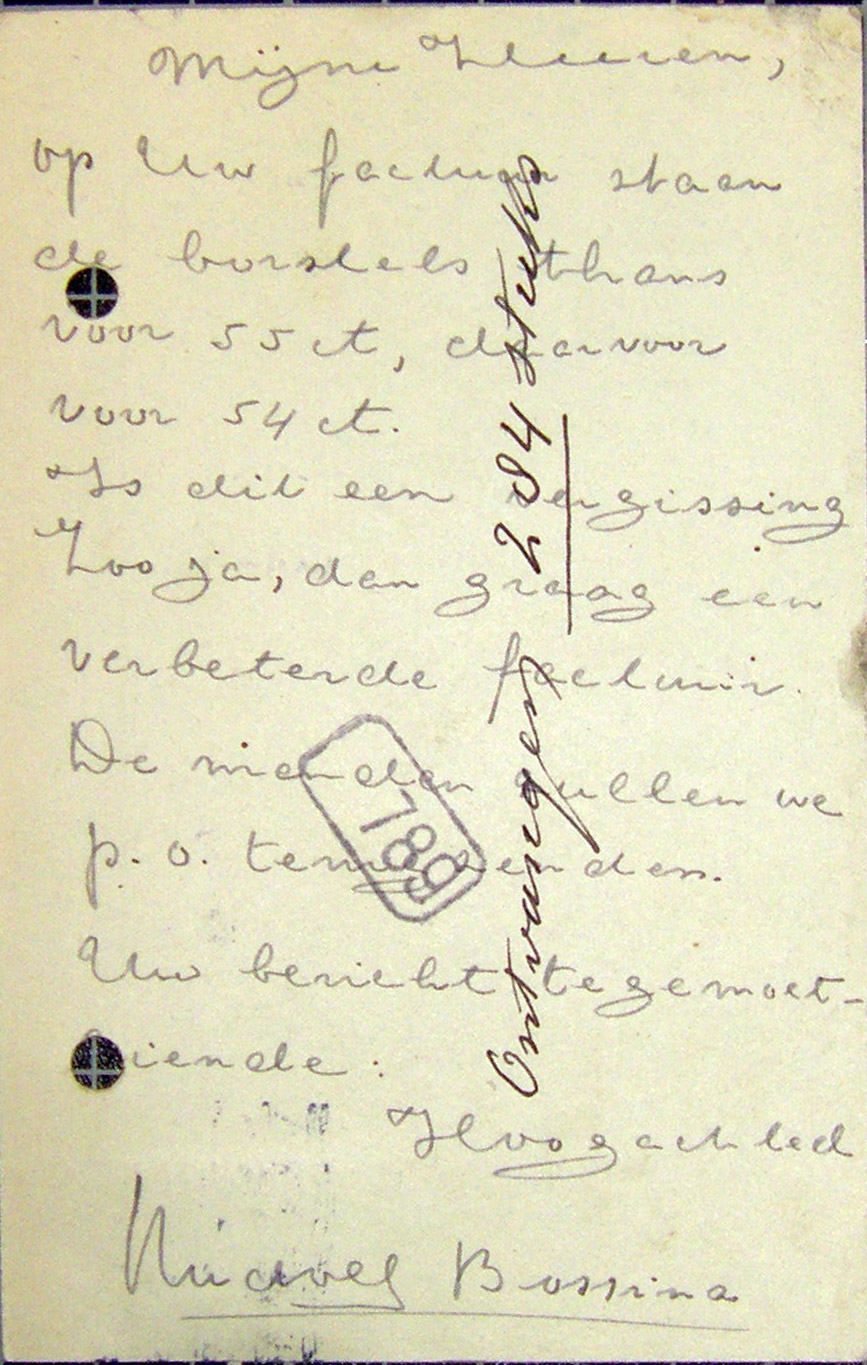 Mijne Heeren,
op Uw factuur staan
de borstels thans
voor 55 ct, daarvoor
voor 54 ct.
Is dit een vergissing
Zoo ja, dan graag een
verbeterde factuur.
De manden zullen we
p. o. terug zenden.
Uw bericht tegemoet-
ziende.
Hoogachted
Bossina
Ontvangen 284 stuks
789